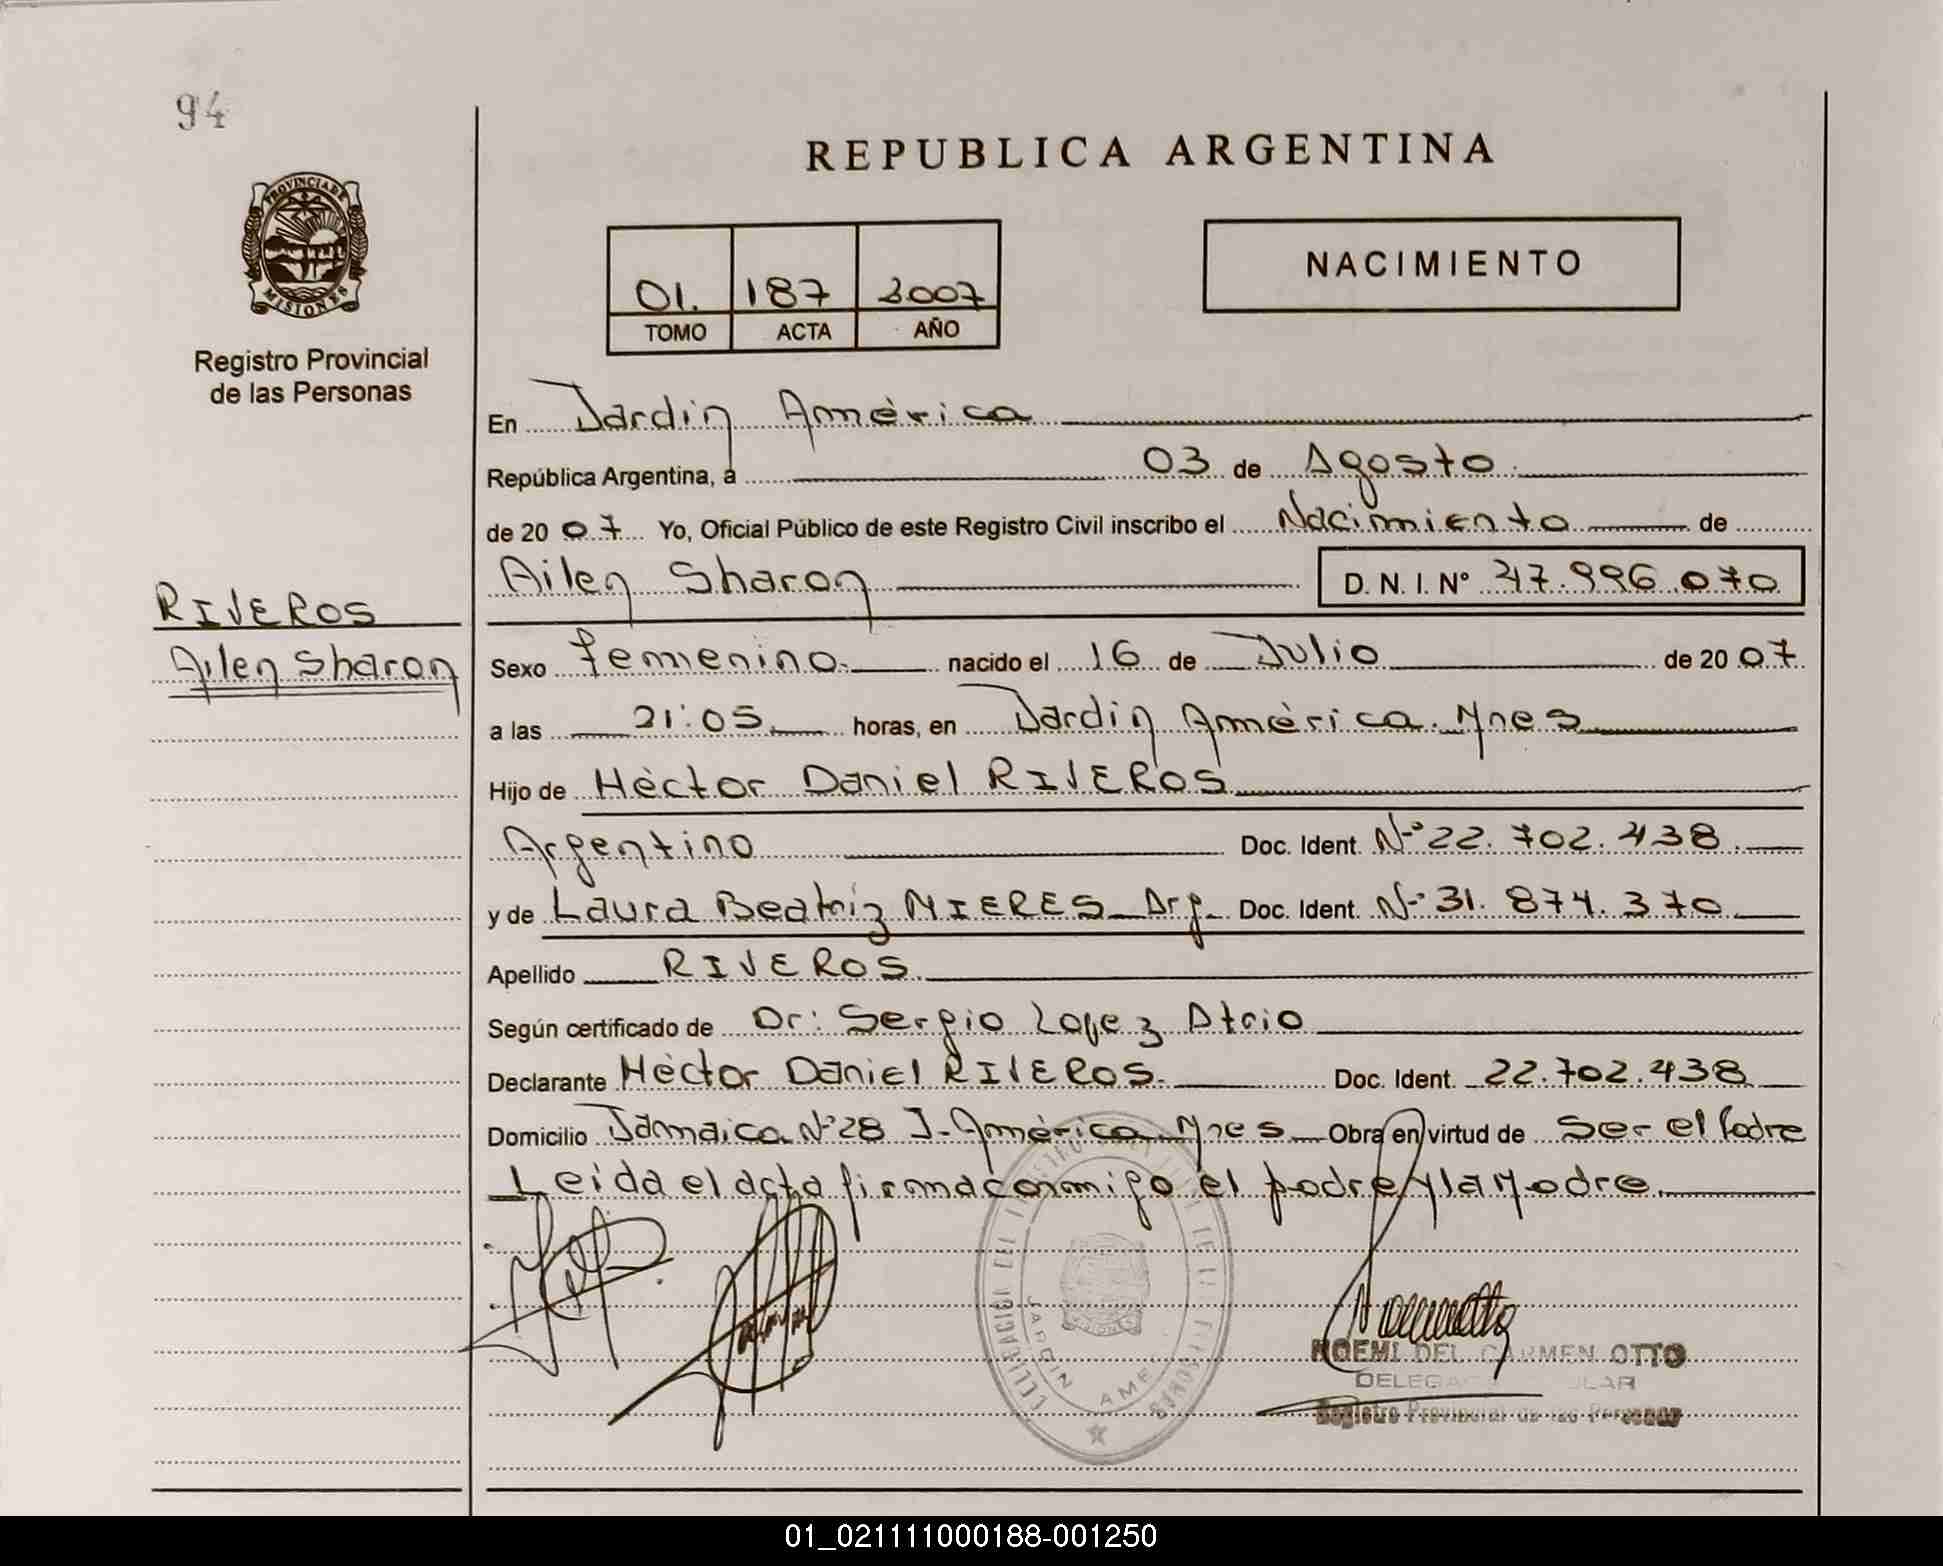 94
REPUBLICA ARGENTINA
PROVINCIA DE
MISIONES
Registro Provincial
de las Personas
01. 187 2007
TOMO ACTA AÑO
NACIMIENTO
En Jardin América
República Argentina, a 03 de Agosto
de 20 07 Yo, Oficial Público de este Registro Civil inscribo el Nacimiento de
Ailen Sharon D. N. I. N° 47.996.070
RIVEROS
Ailen Sharon
Sexo femenino. nacido el 16 de Julio de 20 07
a las 21:05 horas, en Jardin América. Mnes
Hijo de Héctor Daniel RIVEROS
Argentino Doc. Ident. Nº 22.702.438
y de Laura Beatriz MIERES Arg. Doc. Ident. Nº 31.874.370
Apellido RIVEROS
Según certificado de Dr: Sergio Lopez Atrio
Declarante Héctor Daniel RIVEROS. Doc. Ident. 22.702.438
Domicilio Jamaica Nº 28 J. América Mnes Obra en virtud de Ser el Padre
Leida el acta firma conmigo el padre y la Madre
JARDIN AME
MISIONES
NOEMI DEL CARMEN OTTO
Registro Provincial de las Personas
01_021111000188-001250